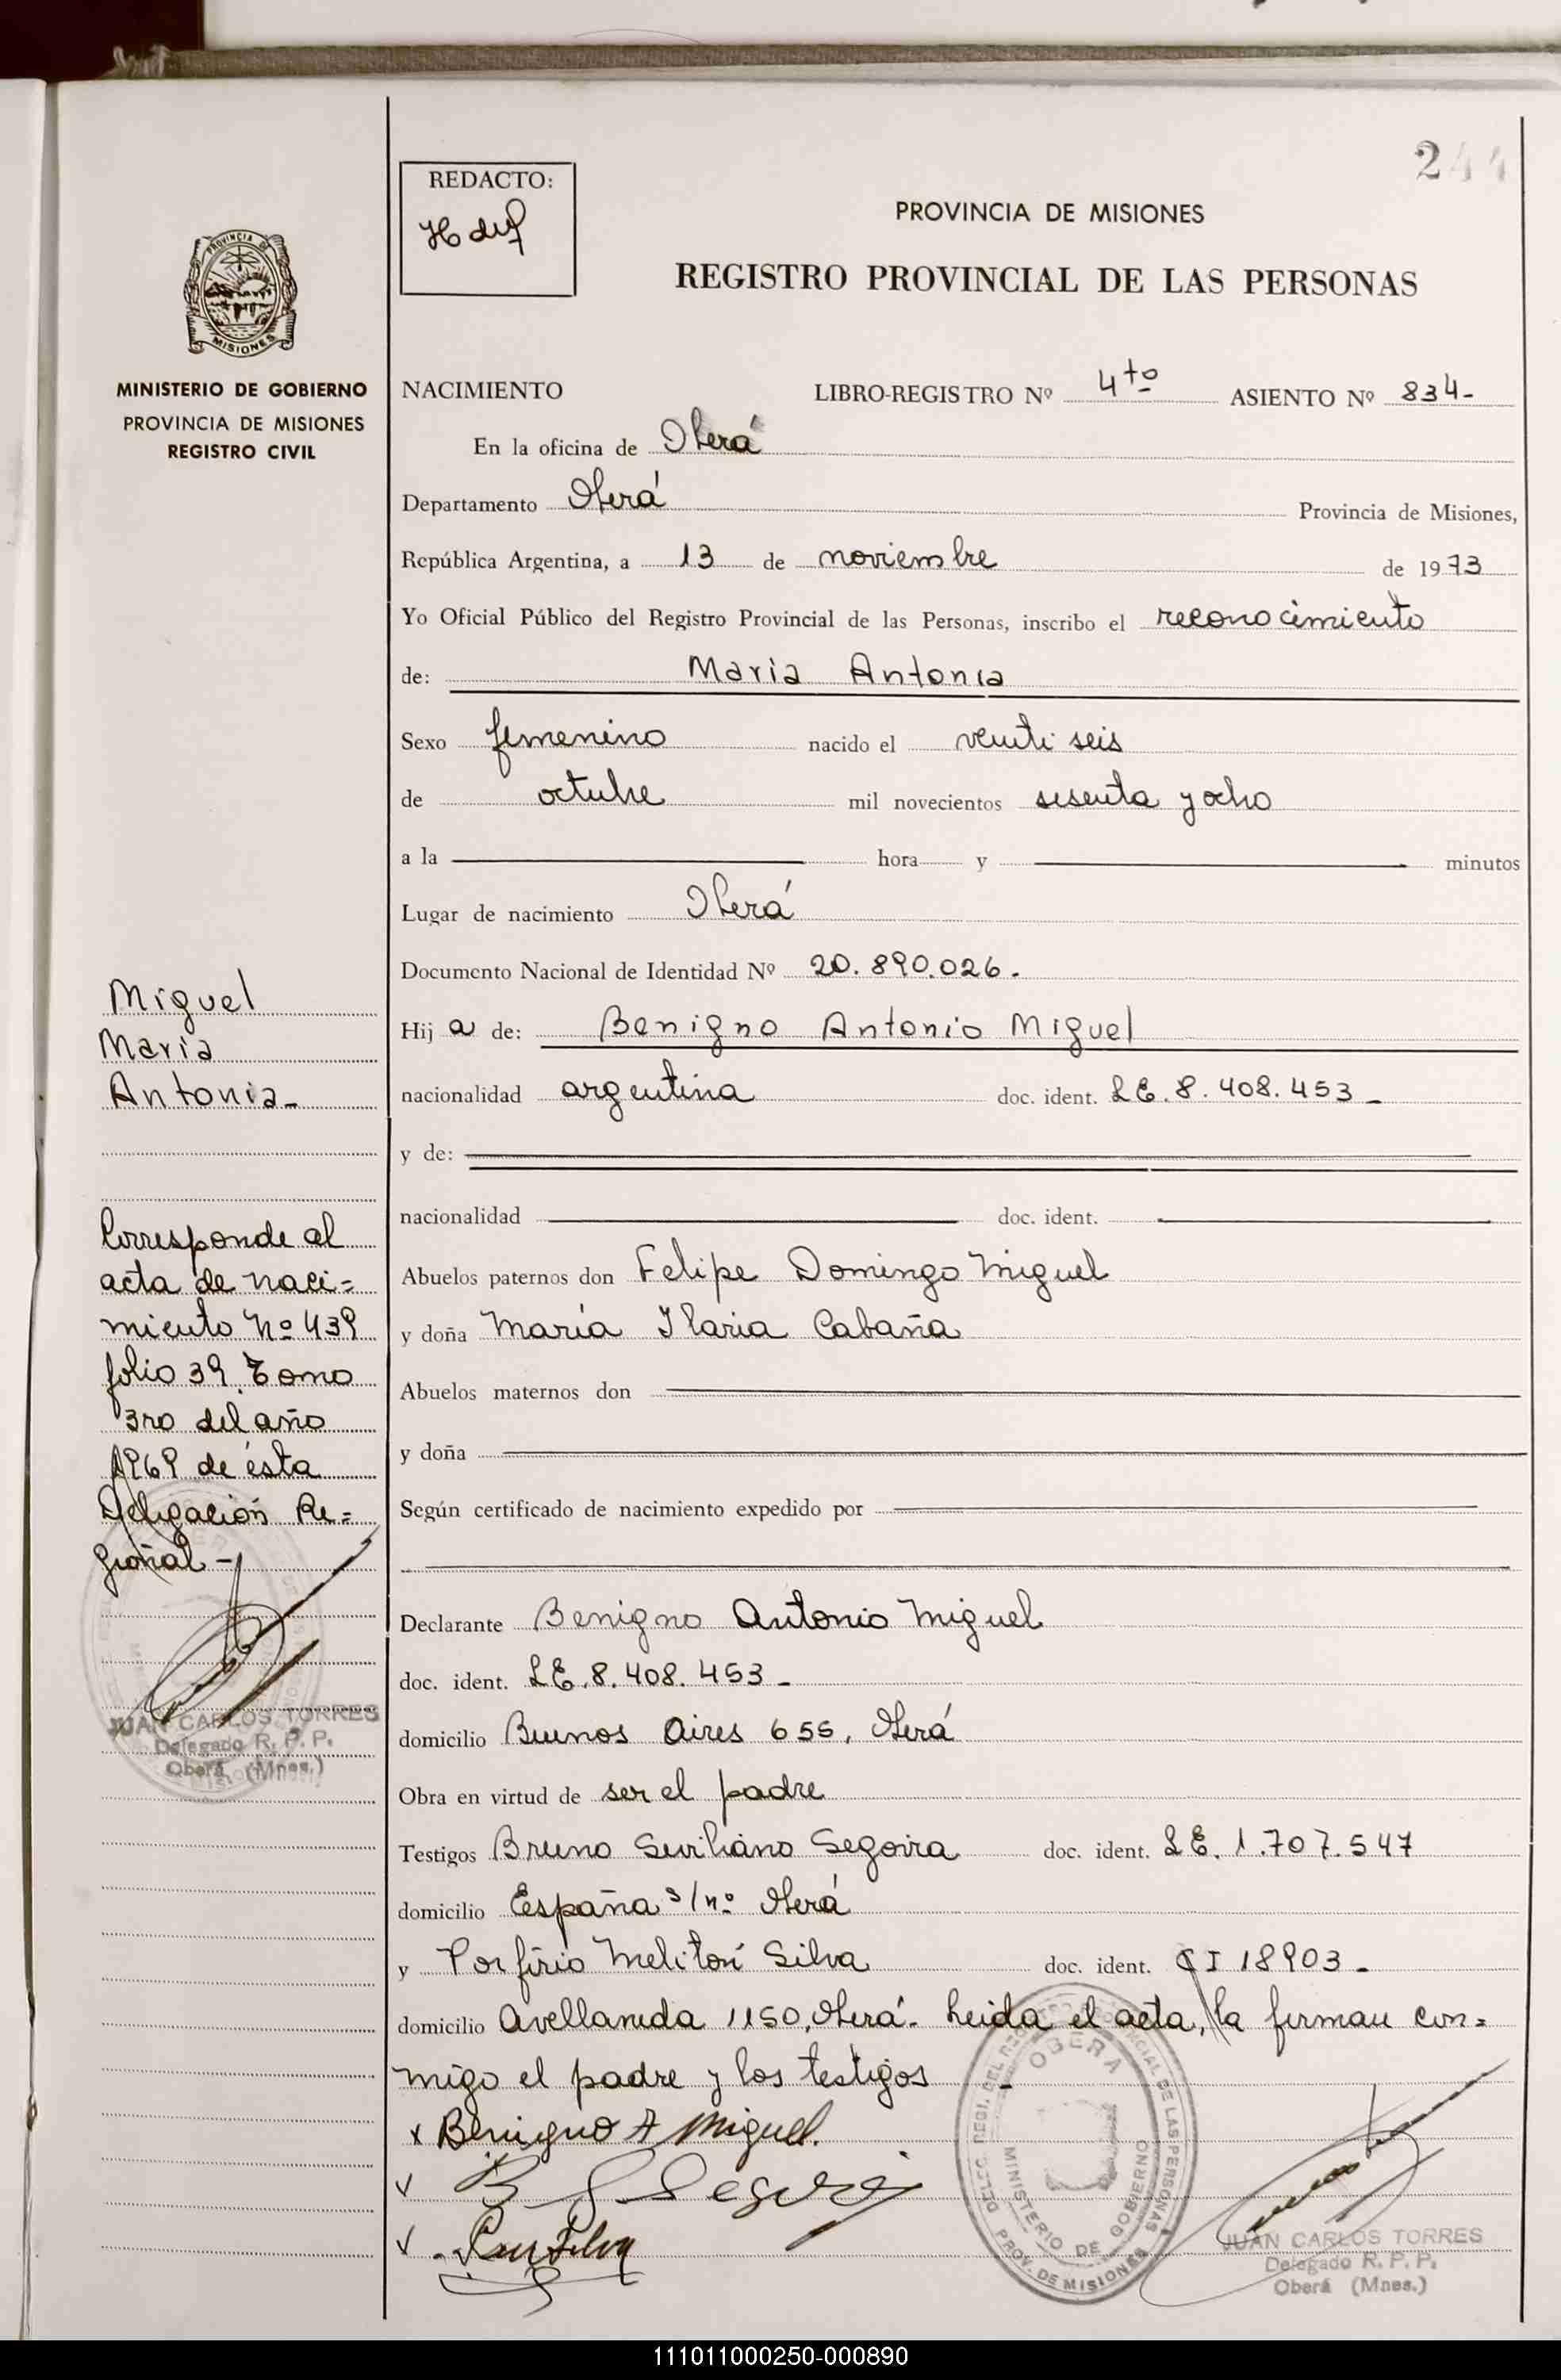 244
REDACTO:
PROVINCIA DE MISIONES
REGISTRO PROVINCIAL DE LAS PERSONAS
PROVINCIA DE
MISIONES
MINISTERIO DE GOBIERNO
PROVINCIA DE MISIONES
REGISTRO CIVIL
NACIMIENTO LIBRO-REGISTRO Nº 4to ASIENTO Nº 834-
En la oficina de Oberá
Departamento Oberá Provincia de Misiones,
República Argentina, a 13 de noviembre de 1973
Yo Oficial Público del Registro Provincial de las Personas, inscribo el reconocimiento
de: Maria Antonia
Sexo femenino nacido el veinti seis
de octubre mil novecientos sesenta y ocho
a la hora y minutos
Lugar de nacimiento Oberá
Documento Nacional de Identidad Nº 20.890.026.
Hij a de: Benigno Antonio Miguel
nacionalidad argentina doc. ident. L.E. 8.408.453-
y de:
nacionalidad doc. ident.
Abuelos paternos don Felipe Domingo Miguel
y doña María Ilaria Cabaña
Abuelos maternos don
y doña
Según certificado de nacimiento expedido por
Declarante Benigno Antonio Miguel
doc. ident. L.E. 8.408.453-
domicilio Buenos Aires 655, Oberá
Obra en virtud de ser el padre
Testigos Bruno Segovia doc. ident. L.E. 1.707.547
domicilio España s/nº Oberá
y Porfirio Melitón Silva doc. ident. CI 18903-
domicilio Avellaneda 1150, Oberá. Leida el acta, la firman con=
migo el padre y los testigos
x Benigno A Miguel.
Miguel
Maria
Antonia-
Corresponde al
acta de naci=
miento Nº 439
folio 39 Tomo
3ro del año
1969 de ésta
Delegación Re=
gional-
JUAN CARLOS TORRES
Delegado R. P. P.
Oberá (Mnes.)
DELEG. REGI. DEL REGISTRO PROVINCIAL DE LAS PERSONAS
OBERA
MINISTERIO DE GOBIERNO
PROV. DE MISIONES
JUAN CARLOS TORRES
Delegado R. P. P.
Oberá (Mnes.)
111011000250-000890